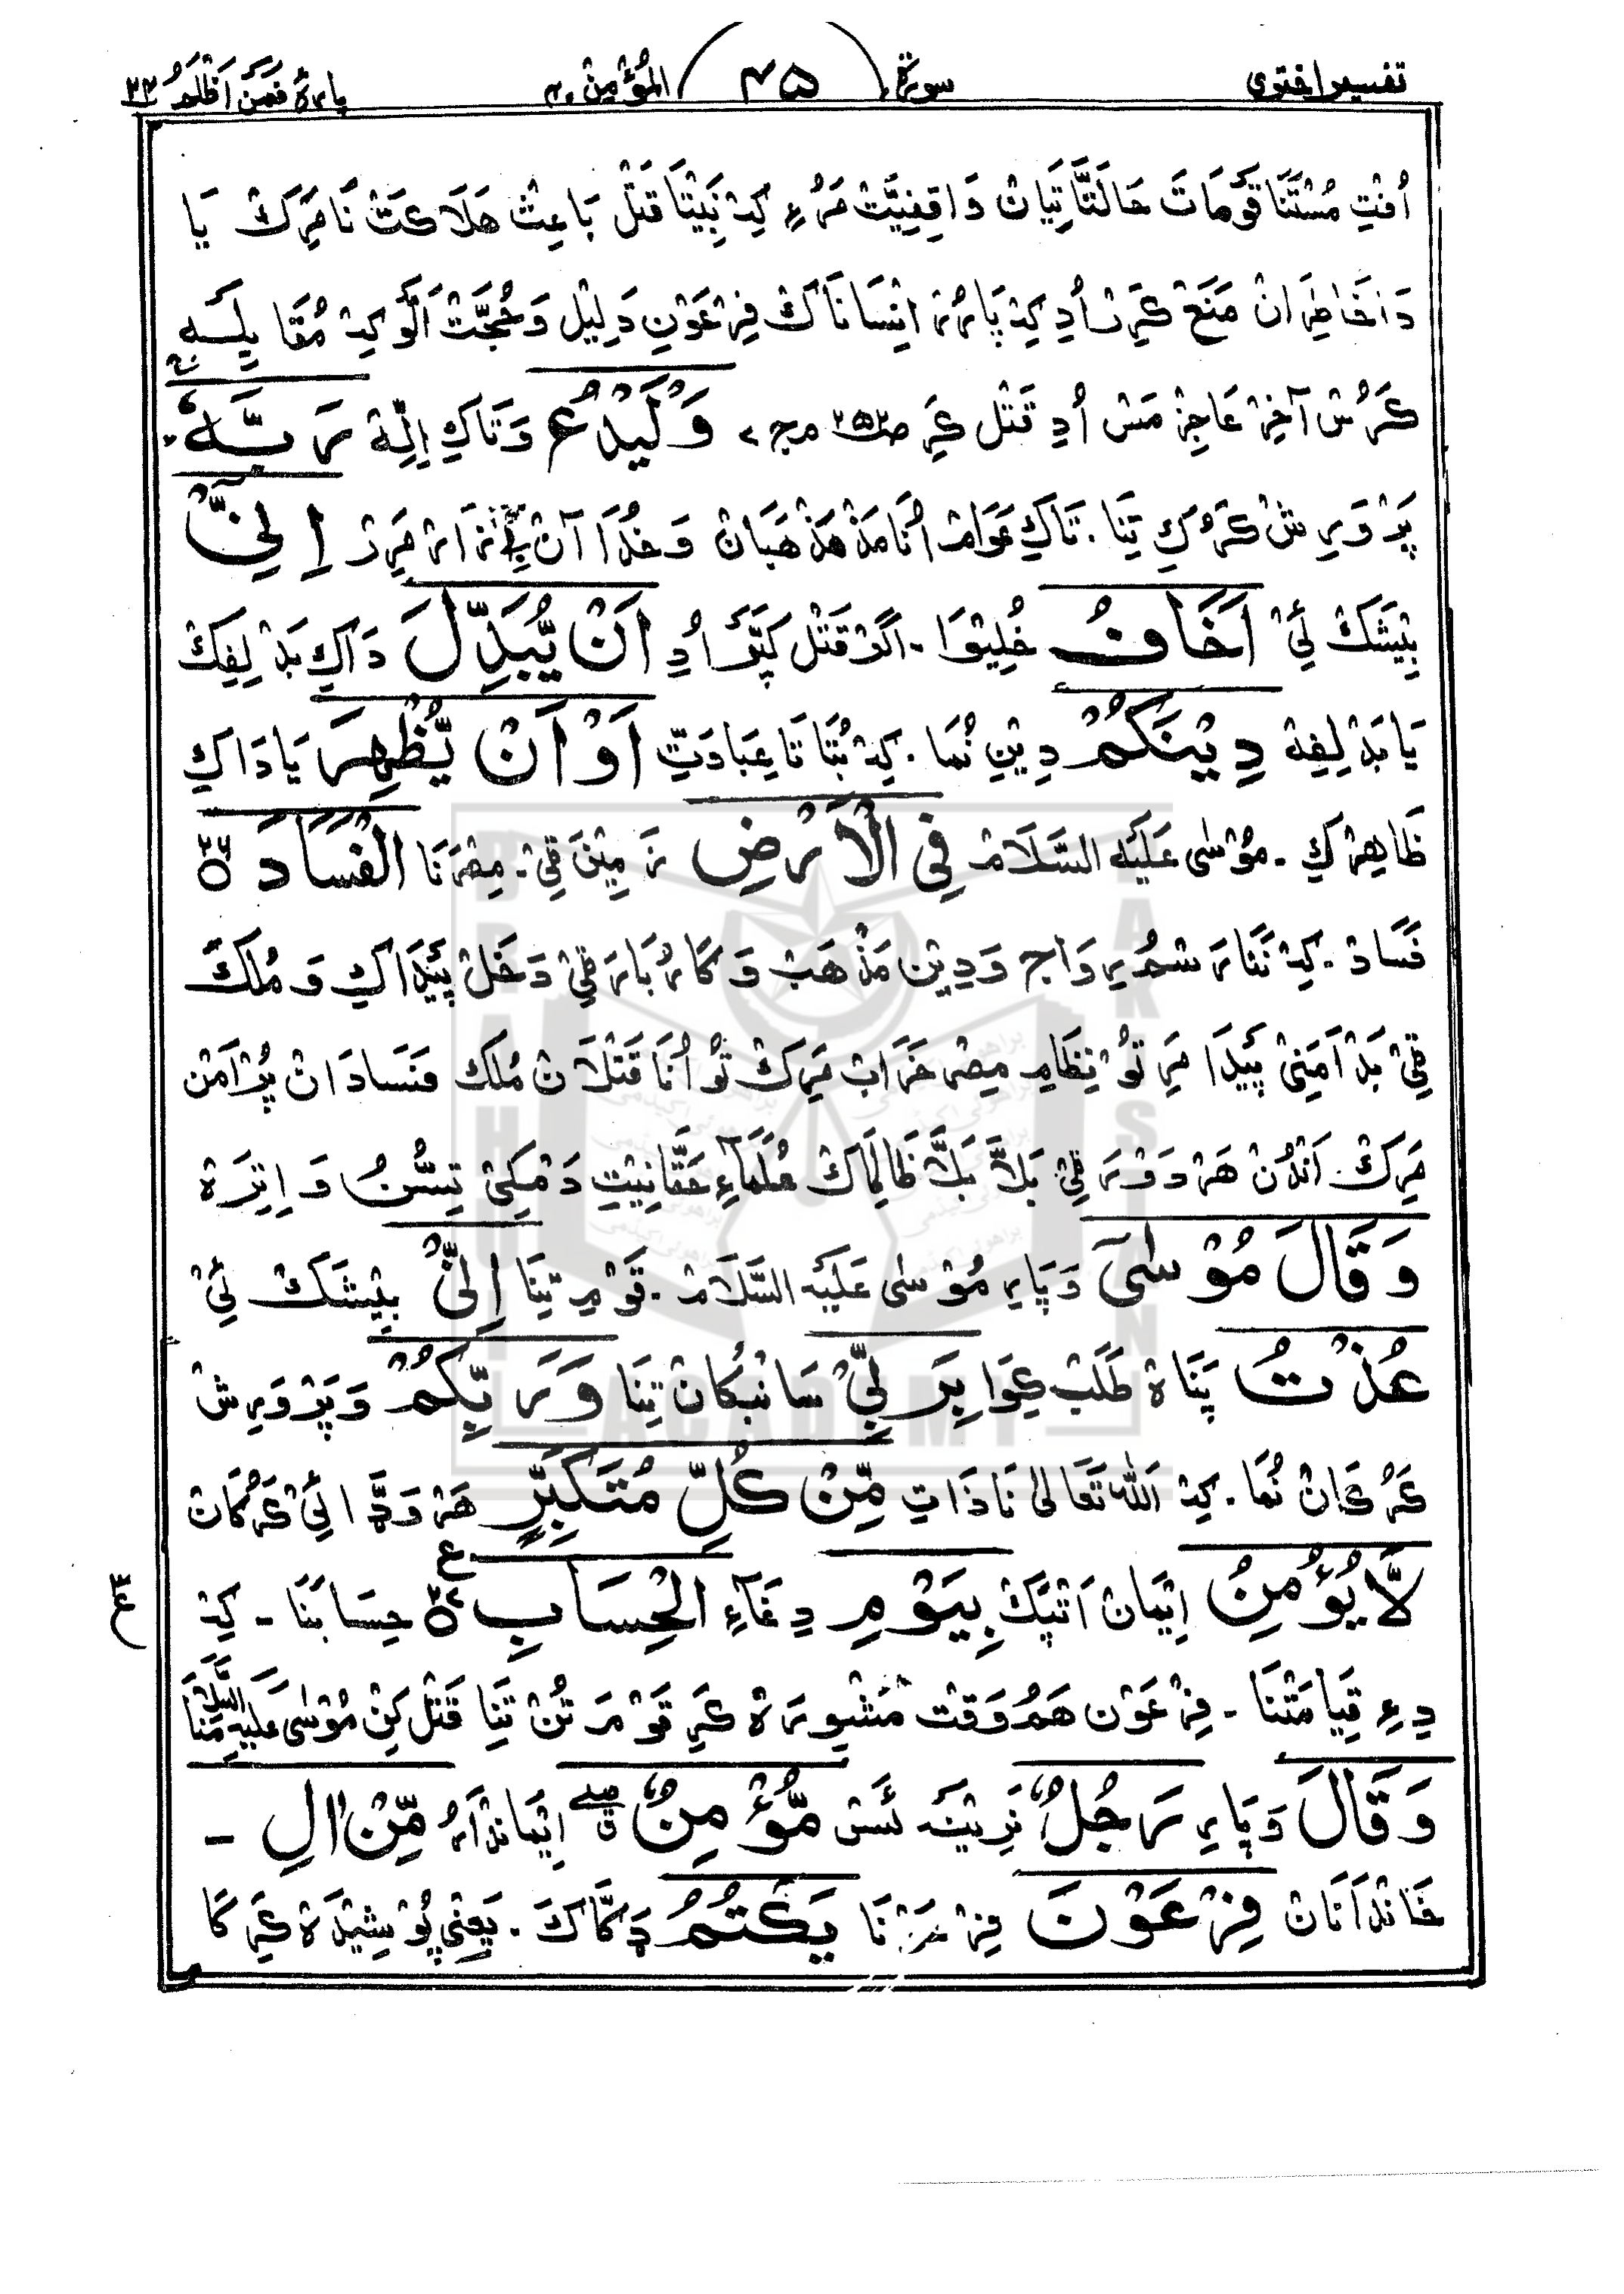 تفسیر اختوی سورۃ ۴۵ المُؤمِن ۴۰ پارہ فَمَن اَظْلَمُ
اُفْتِ مُسْتَنَا قَومَاتَ حَالَتَّا تِیَان وَاقِفِیَّت مَرُءِ کِہ نَبِیتَا قَتْل بَاعِث ھَلَاکَت نَا مَرِکْ یَا
دَا خَاطِرَانْ مَنَعْ کَرِر اُدِ کِہ پَارُر اِنْسَانَاکْ فِرْعَوْنِ دَلِیْل وَ حُجَّتْ اَلَّو کِہ مُقَابِلَہ
کَرُسْ آخِر عَاجِز مَسْ اُدِ قَتْل کَرِ وَلْیَدْعُ وَ تَاکِ اِلِّہ رَبَّہٗ
پَرْوَرِش کَرُکِ تِنَا. تَاکِ عَوَام اُنَا مَذْھَبَان وَ خُدَا آن مَرِر اِنِّیْٓ
بِیْشَکْ ئِیْ اَخَافُ خُلِیْوَا . اَگَرْ قَتْل کَپَّر اُدِ اَنْ یُّبَدِّلَ دَاکِ بَدْلِفِکْ
یَا بَدْلِفِہ دِیْنَکُمْ دِیْنِ نُمَا . کِہ بُتَّا تَا عِبَادَتِّ اَوْ اَنْ یُّظْہِرَ یَا دَاکِ
ظَاھِرکِ . مُوْسٰی عَلَیْہ السَّلَام فِی الْاَرْضِ زَمِیْنَ قِیْ . مِصْرَنَا الْفَسَادَ ۲۶
فَسَادْ . کِہ نَنَا رَسْم رِوَاج وَ دِیْن مَذْھَبْ وَ کَارُبَارَ قِیْ دَخَل پَیْدَاکِ وَ مُلْکَ
قِیْ بَدْاَمَنِیْ پَیْدَا مَرِ تَوْ نِظَامِ مِصْر خَرَابْ مَرِکْ تَوْ اُنَا قَتْلَان مُلْک فَسَادَان پُرْاَمَن
مَرِکْ. اَنْدُن ھَر دَوْرَ قِیْ بَلَّا بَلَّا ظَالِمَاک عُلَمَاءِ حَقَّانِیْتِ دَمْکِیْ تِسُّنُ وَ اِیْزَہ
وَ قَالَ مُوْسٰیٓ وَ پَارِ مُوْسٰی عَلَیْہ السَّلَام . قَوْمِ تِنَا اِنِّیْ بِیْشَکْ ئِیْ
عُذْتُ پَنَاہ طَلَبْ کِیْوَا بِرَبِّیْ سَائِبْکَانْ تِنَا وَ رَبِّکُمْ وَ پَرْوَرِشْ
کَرُکَانْ نُمَا . کِہ اَللہ تَعَالٰی نَا ذَاتِ مِّنْ کُلِّ مُتَکَبِّرٍ ھَرْ وَڈَّائِیْ کَرُکَانْ
لَّا یُؤْمِنُ اِیْمَان اَتِپَکْ بِیَوْمِ دِغَآءِ الْحِسَابِ ۲۷ ع حِسَابْنَا - کِہ
دِءِ قِیَامَتْنَا - فِرْعَوْن ھَمُوَقْت مَشْوِرَہ کَرِ قَوْمَ تُنْ تِنَا قَتْل کِنْ مُوْسٰی عَلَیْہِ السَّلَام نَا
وَ قَالَ وَ پَارِ رَجُلٌ نَرِیْنَہ ئَسْ مُّؤْمِنٌ اِیْمَانْدَار مِّنْ اٰلِ -
خَانْدَانَانْ فِرْعَوْنَ نَا یَکْتُمُ ڈَکَّاکَ . یَعْنِیْ پُوْشِیْدَہ کَرِکَا